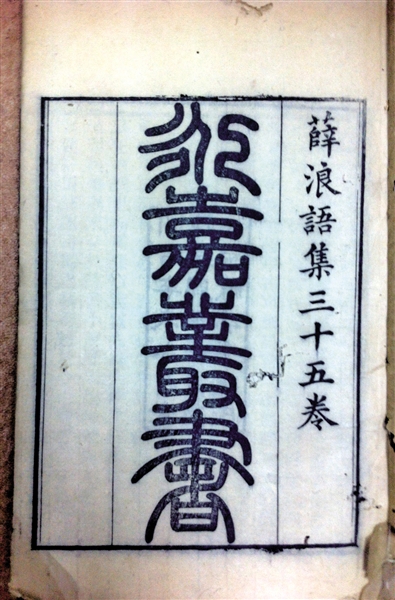 薛浪語集三十五卷
永嘉叢書